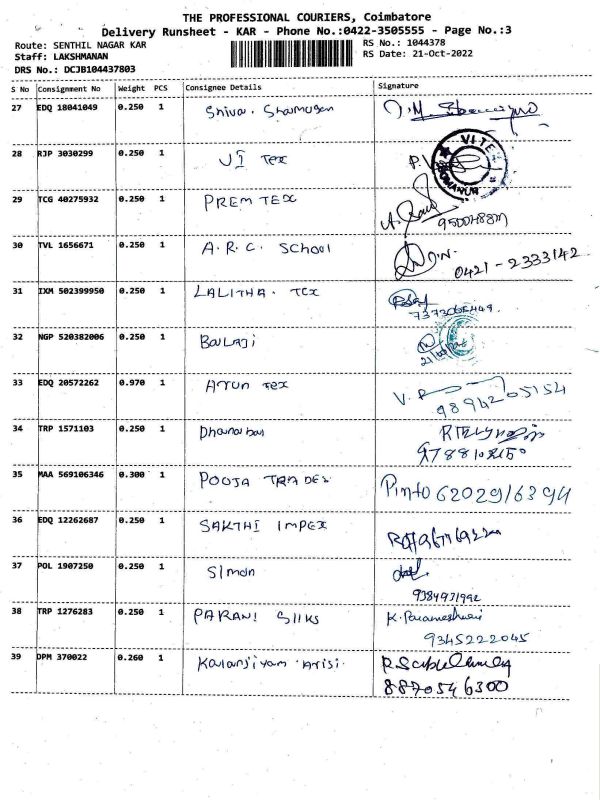 THE PROFESSIONAL COURIERS, Coimbatore
Delivery Runsheet - KAR - Phone No.:0422-3505555 - Page No.:3
Route: SENTHIL NAGAR KAR RS No.: 1044378
Staff: LAKSHMANAN RS Date: 21-Oct-2022
DRS No.: DCJB104437803
S No Consignment No Weight PCS Consignee Details Signature
27 EDQ 18041049 0.250 1 Shiva. Shanmugan
28 RJP 3030299 0.250 1 VI Tex
29 TCG 40275932 0.250 1 PREM TEX
30 TVL 1656671 0.250 1 A.R.C. School
0421-2333142
31 IXM 502399950 0.250 1 LALITHA. TEX
32 NGP 520382006 0.250 1 BaLaji
33 EDQ 20572262 0.970 1 Arun Tex
9894205154
34 TRP 1571103 0.250 1
35 MAA 569106346 0.300 1 POOJA TRADES Pinto 6202916394
36 EDQ 12262687 0.250 1 SAKTHI IMPEX
37 POL 1907250 0.250 1 Simon
9384931992
38 TRP 1276283 0.250 1 PARANI Silks K. Parameshwari
9345222045
39 DPM 370022 0.260 1 Kalanjiyam Arisi.
8870546300